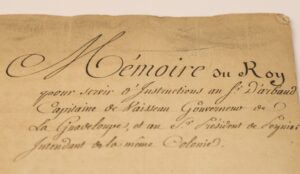 Mémoire du Roy
pour servir d'Instructions au Sr. d'arbaud
Capitaine de Vaisseau Gouverneur de
La Guadeloupe, et au Sr. Président de Peynier
Intendant de la même Colonie.